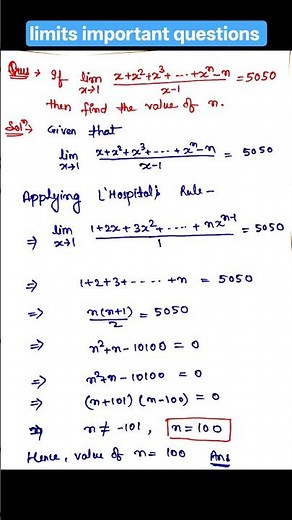 limits important questions
Ques → If lim x→1 x+x²+x³+----+xⁿ-n / x-1 = 5050
then find the value of n.
Solⁿ→ Given that
lim x→1 x+x²+x³+----+xⁿ-n / x-1 = 5050
Applying L'Hospital's Rule-
⇒ lim x→1 1+2x+3x²+----+nxⁿ⁻¹ / 1 = 5050
⇒ 1+2+3+----+n = 5050
⇒ n(n+1) / 2 = 5050
⇒ n²+n-10100 = 0
⇒ n²+n-10100 = 0
⇒ (n+101) (n-100) = 0
⇒ n ≠ -101, n = 100
Hence, value of n = 100 Ans